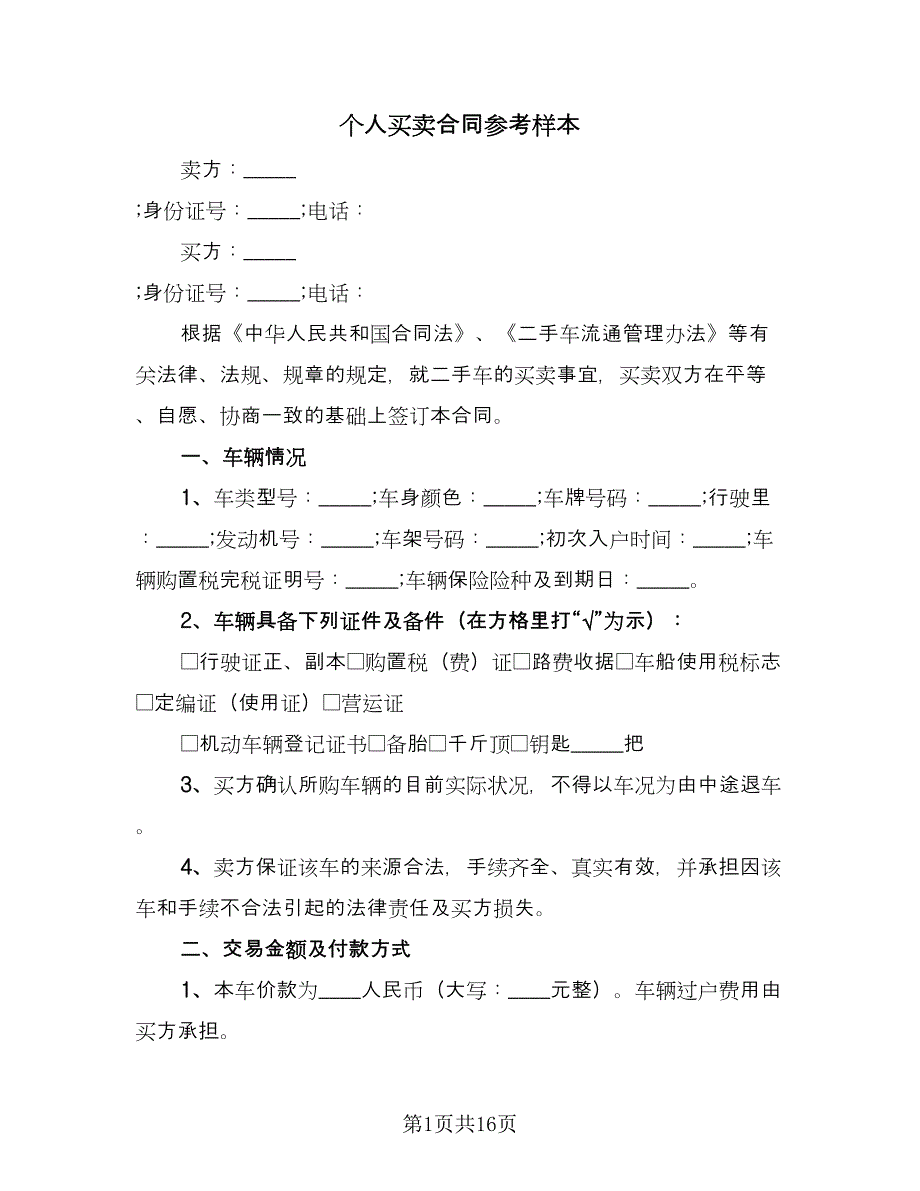 个人买卖合同参考样本
卖方：_____
;身份证号：_____;电话：
买方：_____
;身份证号：_____;电话：
根据《中华人民共和国合同法》、《二手车流通管理办法》等有
关法律、法规、规章的规定，就二手车的买卖事宜，买卖双方在平等
、自愿、协商一致的基础上签订本合同。
一、车辆情况
1、车类型号：_____;车身颜色：_____;车牌号码：_____;行驶里
：_____;发动机号：_____;车架号码：_____;初次入户时间：_____;车
辆购置税完税证明号：_____;车辆保险险种及到期日：_____。
2、车辆具备下列证件及备件（在方格里打“√”为示）：
□行驶证正、副本□购置税（费）证□路费收据□车船使用税标志
□定编证（使用证）□营运证
□机动车辆登记证书□备胎□千斤顶□钥匙_____把
3、买方确认所购车辆的目前实际状况，不得以车况为由中途退车
。
4、卖方保证该车的来源合法，手续齐全、真实有效，并承担因该
车和手续不合法引起的法律责任及买方损失。
二、交易金额及付款方式
1、本车价款为____人民币（大写：____元整）。车辆过户费用由
买方承担。
第1页共16页